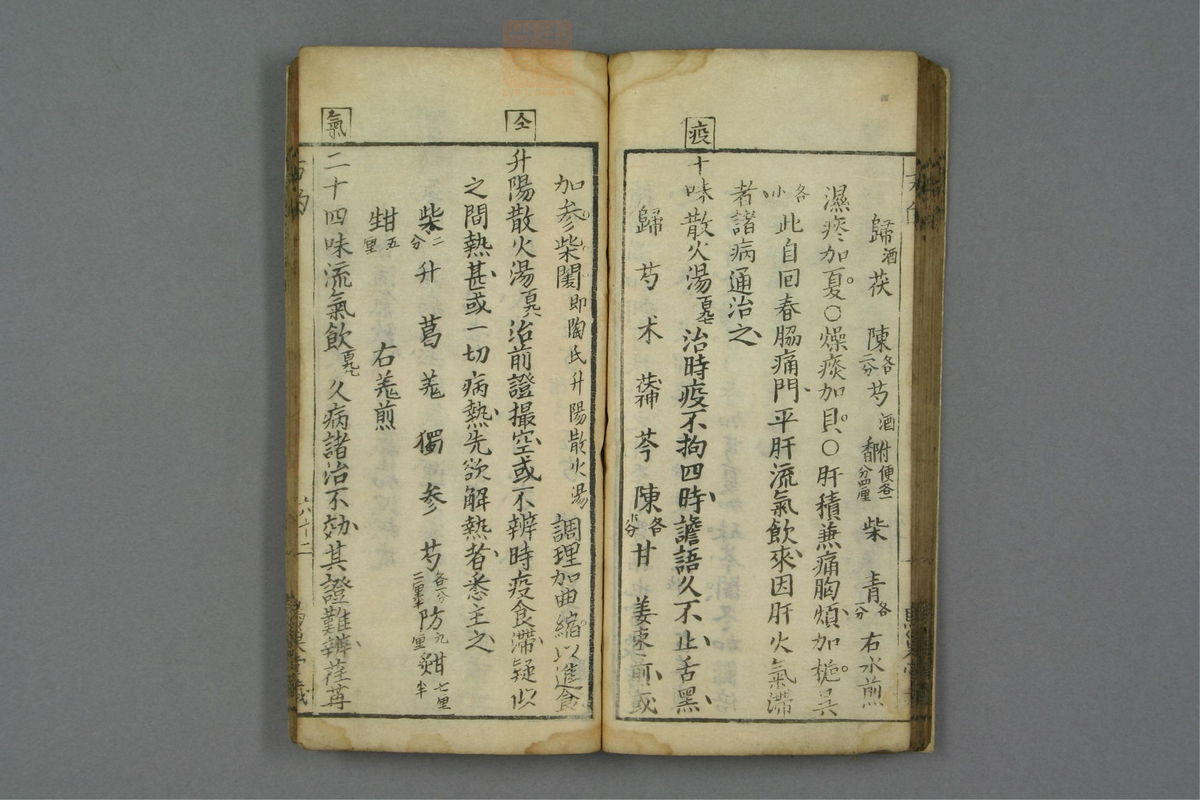 歸酒 茯 陳各二分 芍酒 附便 香各一分四厘 柴 青各一分 右水煎
濕痰加夏○燥痰加貝○肝積兼痛胸煩加梔吳
各小 此自回春脇痛門平肝流氣飲來因肝火氣滯
者諸病通治之
疫
十味散火湯 治時疫不拘四時譫語久不止舌黑
歸 芍 术 茯神 芩 陳各 甘 姜棗煎或
加參柴闔即陶氏升陽散火湯調理加曲縮以進食
仝
升陽散火湯 治前證撮空或不辨時疫食滯疑似
之間熱甚或一切病熱先欲解熱者悉主之
柴二分 升 葛 羌 獨 參 芍各二分二厘半 防九厘 甘七厘半
甘五厘 右羌煎
氣
二十四味流氣飲 久病諸治不効其證難辨荏苒
六十二